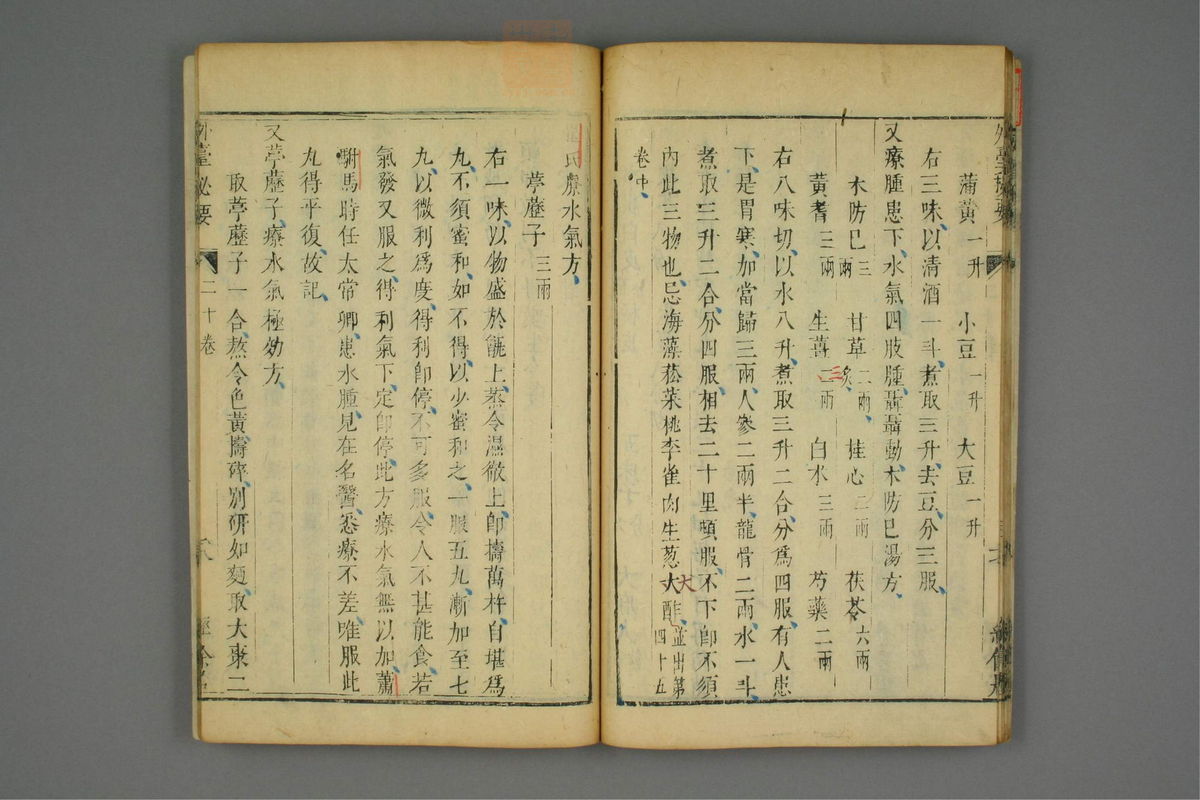 蒲黃一升 小豆一升 大豆一升
右三味以清酒一斗煮取三升去豆分三服
又療腫患下水氣四肢腫聶聶動木防巳湯方
木防巳三兩 甘草二兩炙 桂心二兩 茯苓六兩
黃耆三兩 生薑三二兩 白水三兩 芍藥二兩
右八味切以水八升煮取三升二合分爲四服有人患
下是胃寒加當歸三兩人參二兩半龍骨二兩水一斗
煮取三升二合分四服相去二十里頓服不下卽不須
內此三物也忌海藻菘菜桃李雀肉生葱大大酢並出第四十五
卷中
氏療水氣方
葶藶子三兩
右一味以物盛於甑上蒸令濕徹上卽擣萬杵自堪爲
丸不須蜜和如不得以少蜜和之一服五丸漸加至七
丸以微利爲度得利卽停不可多服令人不甚能食若
氣發又服之得利氣下定卽停此方療水氣無以加蕭
駙馬時任太常卿患水腫見在名醫悉療不差唯服此
丸得平復故記
又葶藶子療水氣極効方
取葶藶子一合熬令色黃擣碎別研如麵取大棗二
外臺秘要 二十卷 經餘居